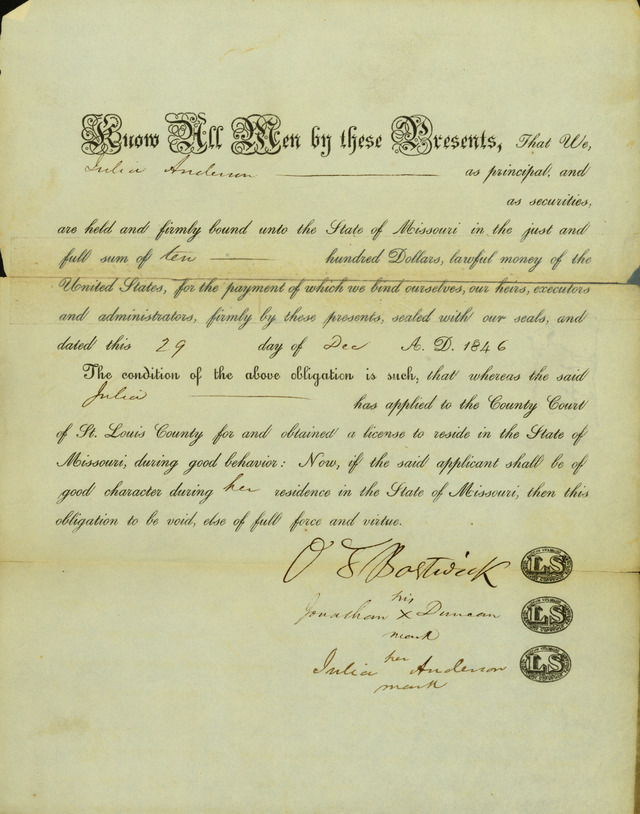 Know All Men by these Presents, That We,
Julia Anderson as principal, and
as securities,
are held and firmly bound unto the State of Missouri in the just and
full sum of ten hundred Dollars, lawful money of the
United States, for the payment of which we bind ourselves, our heirs, executors
and administrators, firmly by these presents, sealed with our seals, and
dated this 29 day of Dec A. D. 1846
The condition of the above obligation is such, that whereas the said
Julia has applied to the County Court
of St. Louis County for and obtained a license to reside in the State of
Missouri, during good behavior: Now, if the said applicant shall be of
good character during her residence in the State of Missouri, then this
obligation to be void, else of full force and virtue.
O F Bostwick LS
his
Jonathan X Duncan LS
mark
her
Julia Anderson LS
mark